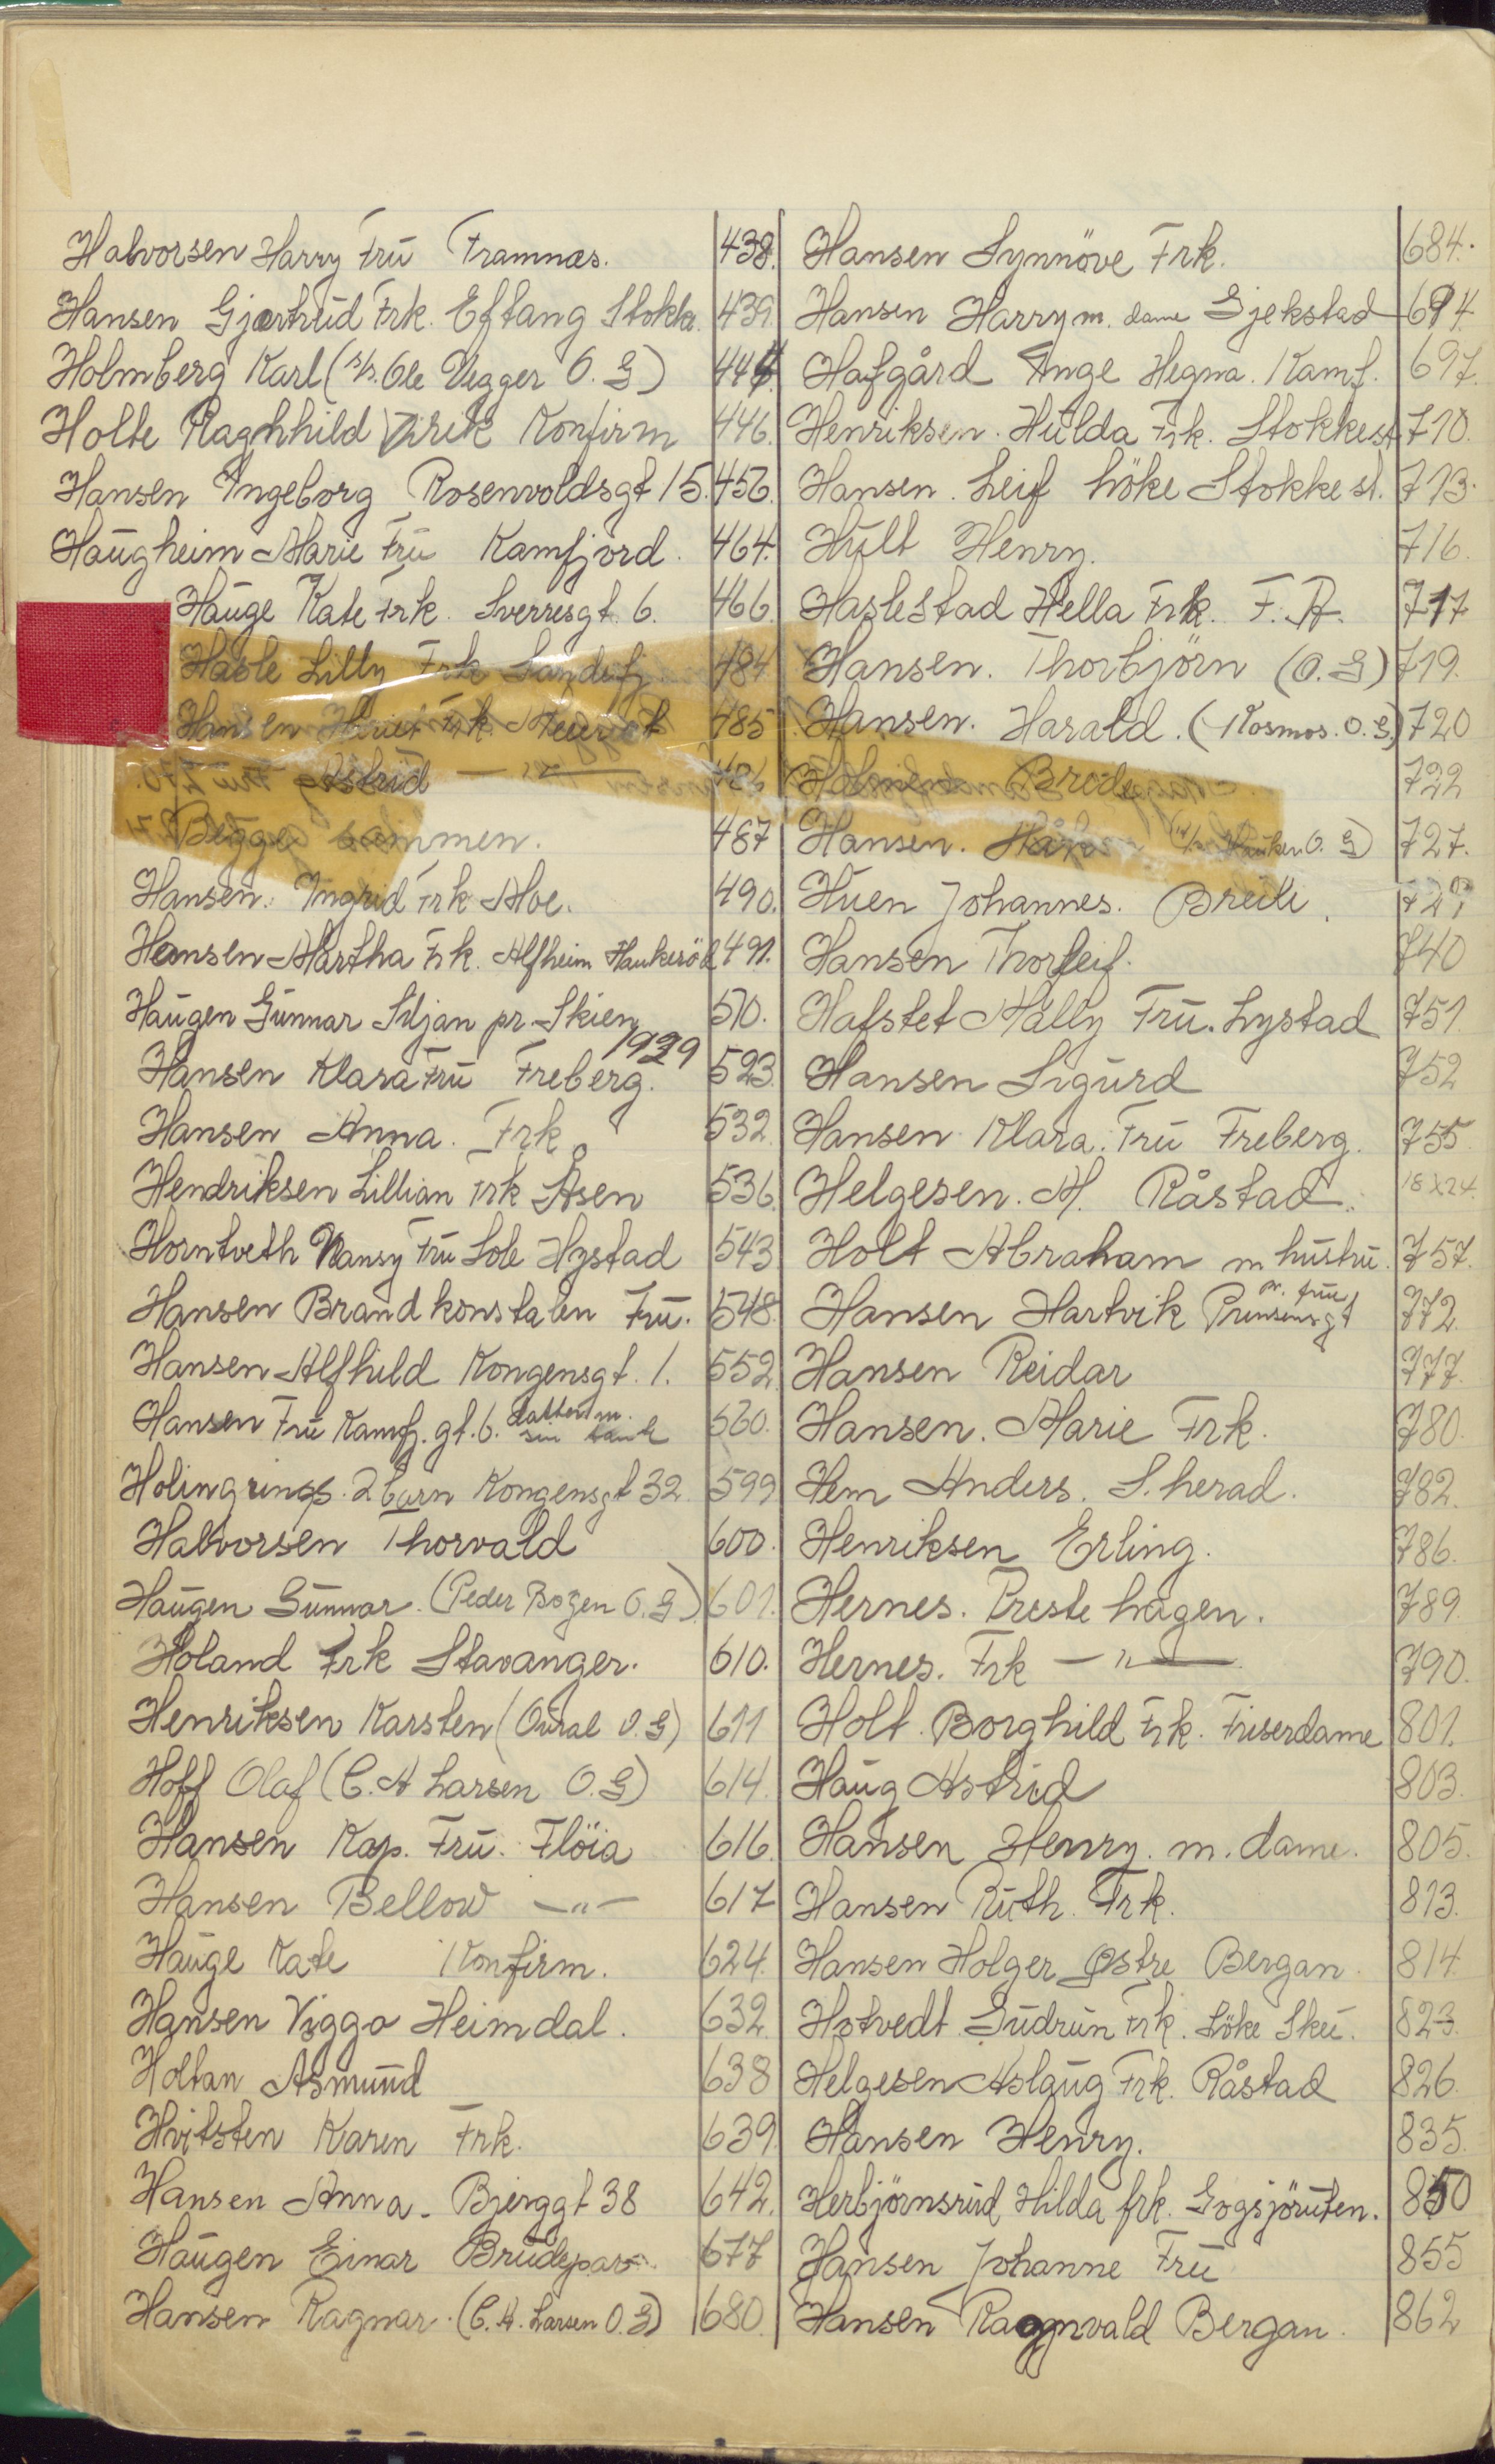 Halvorsen Harry Frū Framnæs. 438.
Hansen Gjærtrūd Frk. Eftang Stokke. 439.
Holmberg Karl (s/s. Ole Wegger O. G) 444.
Holte Ragnhild Virik Konfirm 446.
Hansen Ingeborg Rosenvoldsgt 15. 456.
Haūgheim Marie Frū Kamfjord. 464.
Haūge Kate Frk. Sverresgt. 6. 466.
Hasle Lilly Frk Sandefj 484
Hansen Frk 485
Astrid — " — 486
Begge sammen. 487
Hansen. Ingrid Frk Moe. 490.
Hansen Martha Frk. Alfheim Haukeröd 491.
Haūgen Gūnnar Siljan pr. Skien 570.
1929
Hansen Klara Frū Freberg. 523.
Hansen Anna. Frk. 532.
Hendriksen Lillian Frk Åsen 536.
Horntveth Nansy Frū Sole Hystad 543
Hansen Brandkonstaben Frū. 548.
Hansen Alfhild Kongensgt. 1. 552.
Hansen Frū Kamfj. gt. 6. datter m. sin 560.
Holingrings. 2 barn Kongensgt 32. 599
Halvorsen Thorvald 600.
Haūgen Gūnnar. (Peder Bogen O. G). 601.
Holand Frk Stavanger. 610.
Henriksen Karsten (Oūral O. G) 611
Hoff Olaf (C. A Larsen O. G) 614.
Hansen Kap. Frū. Flöia 616.
Hansen Bellow — " — 617
Haūge Kate Konfirm. 624.
Hansen Viggo Heimdal. 632.
Holtan Asmūnd 638
Hvitsten Karen Frk. 639.
Hansen Anna. Bjerggt 38 642.
Haūgen Einar Brūdepar. 677
Hansen Ragnar. (C. A. Larsen O. G) 680.
Hansen Synnöve Frk. 684.
Hansen Harry m. dame Gjekstad 694.
Hafgård Inge Hegna. Kamf. 697.
Henriksen. Hūlda Frk. Stokke st. 710.
Hansen. Leif höke Stokke st. 713.
Hūlt Henry. 716.
Haslestad Hella Frk. F. R. 717
Hansen. Thorbjörn (O. G) 719.
Hansen. Harald. (Kosmos. O. G.) 720
Brūdepar 722
Hansen. (s/s O. G) 727.
Hūen Johannes. Breili. 729
Hansen Thorleif. 740
Hafstet Mally Frū. Lystad 751.
Hansen Sigūrd 752
Hansen Klara. Frū Freberg. 755.
Helgesen. M. Råstad. 18X24.
Holt Abraham m hūstrū. 757.
Hansen Hartvik m. frue Prinsensgt 772.
Hansen Reidar 777.
Hansen. Marie Frk. 780.
Hem Anders. S. herad. 782.
Henriksen Erling. 786.
Hernes. Preste hagen. 789.
Hernes. Frk — " — 790.
Holt. Borghild Frk. Friserdame 801.
Haūg Astrid 803.
Hansen Henry. m. dame. 805.
Hansen Rūth. Frk. 813.
Hansen Holger Østre Bergan. 814.
Hotvedt Gūdrūn Frk. Löke Skū. 823.
Helgesen Aslaūg Frk. Råstad 826.
Hansen Henry. 835.
Herbjörnsrūd Hilda frk. Gogsjörūten. 850
Hansen Johanne Frū 855
Hansen Ragnvald Bergan. 862